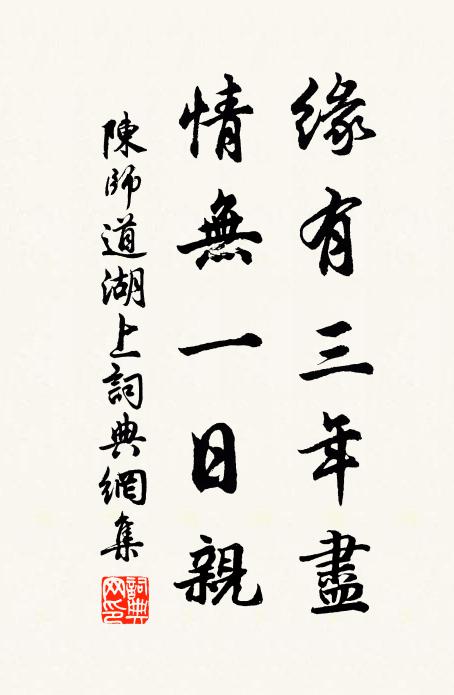 緣有三年盡
情無一日親
陳師道湖上詞典網集
詞典網印